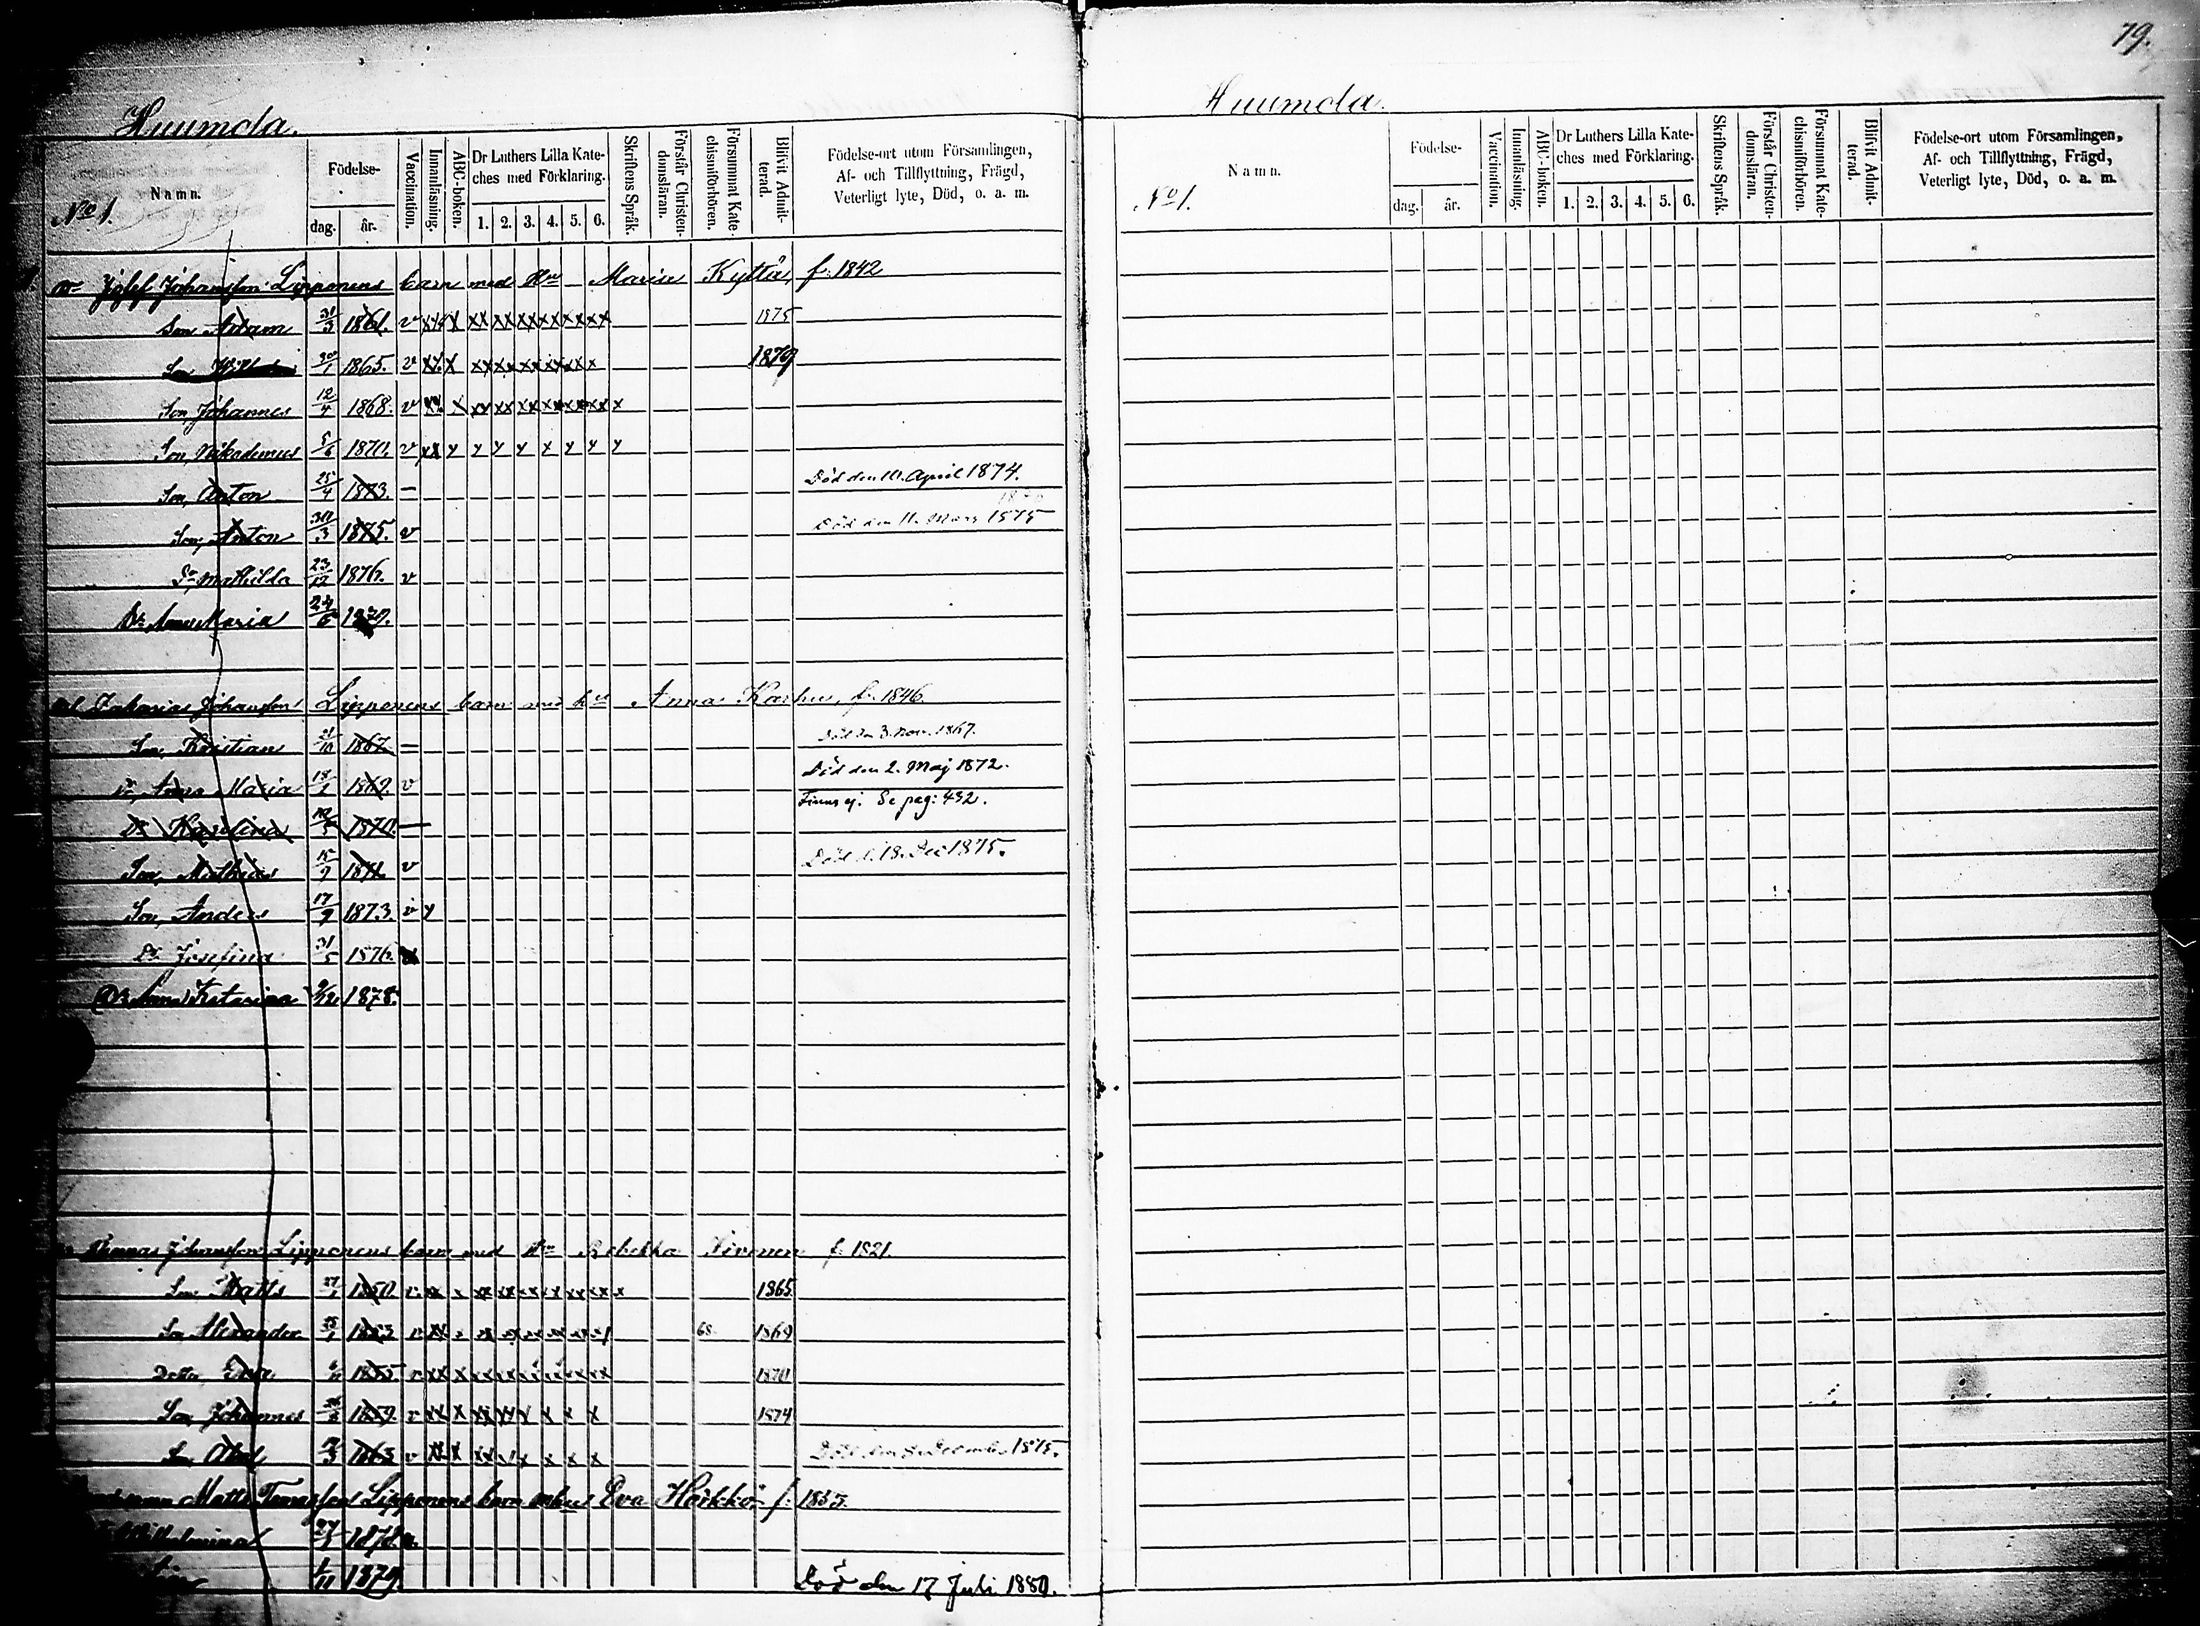 79.
Huumola.
Namn.
No 1.
Födelse-
dag. år.
Vaccination.
Innanläsning.
ABC-boken.
Dr Luthers Lilla Kate-
ches med Förklaring.
1. 2. 3. 4. 5. 6.
Skriftens Språk.
Förstår Christen-
domsläran.
Försummat Kate-
chismiförhören.
Blifvit Admit-
terad.
Födelse-ort utom Församlingen,
Af- och Tillflyttning, Frägd,
Veterligt lyte, Död, o. a. m.
Josef Johansson Lipponens barn med Maria Kyttä, f: 1842
Son Adam 31/3 1861. v xx x xx xx xx xx xx xx 1875
Son 30/1 1865. v xx x xx xx xx xx xx x 1879
Son, Johannes 12/4 1868. v xx x xx xx xx xx xx xx x
Son, Nikodemus 5/6 1870. v xx x x x x x x x x
Son, Anton 25/4 1873. — Död den April 1874.
Son, Anton 30/3 1875. v Död den 11. Mars 1875
Dr Mathilda 23/12 1876. v
Dr Anna Maria 24/6 1879.
Zakarias Johansson Lipponens barn med Anna Karhu, f. 1846.
Son, Kristian 21/10 1867 — Död den 3. Nov. 1867.
Dr, Anna Maria 18/1 1869. v Död den 2. Maj 1872.
Finns ej. Se pag: 432.
Dr Karolina 1870. —
Son, Mathias 15/9 1871. v Död d. 18. Dec 1875.
Son, Anders 17/9 1873 v x
Dr. Josefina 31/5 1876.
Dr Anna Katarina 9/12 1878.
Thomas Johansson Lipponens barn med Rebekka Sivonen f. 1821.
Son Matts 27/1 1850. v xx x xx xx xx xx xx xx x 1865
Son Alexander 1853 v xx x xx xx xx xx xx xx 68. 1869
Dottr, Eva 1855 v xx x xx xx xx xx xx xx 1870
Son, Johannes 1859. v xx x xx xx x x x x 1874
Son, Abel 1863 v xx x xx x x x x x Död den December 1875.
Matts Tomasson Lipponens barn Eva Heikko f. 1855.
Wilhelmina 27/1 1878.
1/11 1879 Död den 17 Juli 1880.
Huumola.
Namn.
No 1.
Födelse-
dag. år.
Vaccination.
Innanläsning.
ABC-boken.
Dr Luthers Lilla Kate-
ches med Förklaring.
1. 2. 3. 4. 5. 6.
Skriftens Språk.
Förstår Christen-
domsläran.
Försummat Kate-
chismiförhören.
Blifvit Admit-
terad.
Födelse-ort utom Församlingen,
Af- och Tillflyttning, Frägd,
Veterligt lyte, Död, o. a. m.